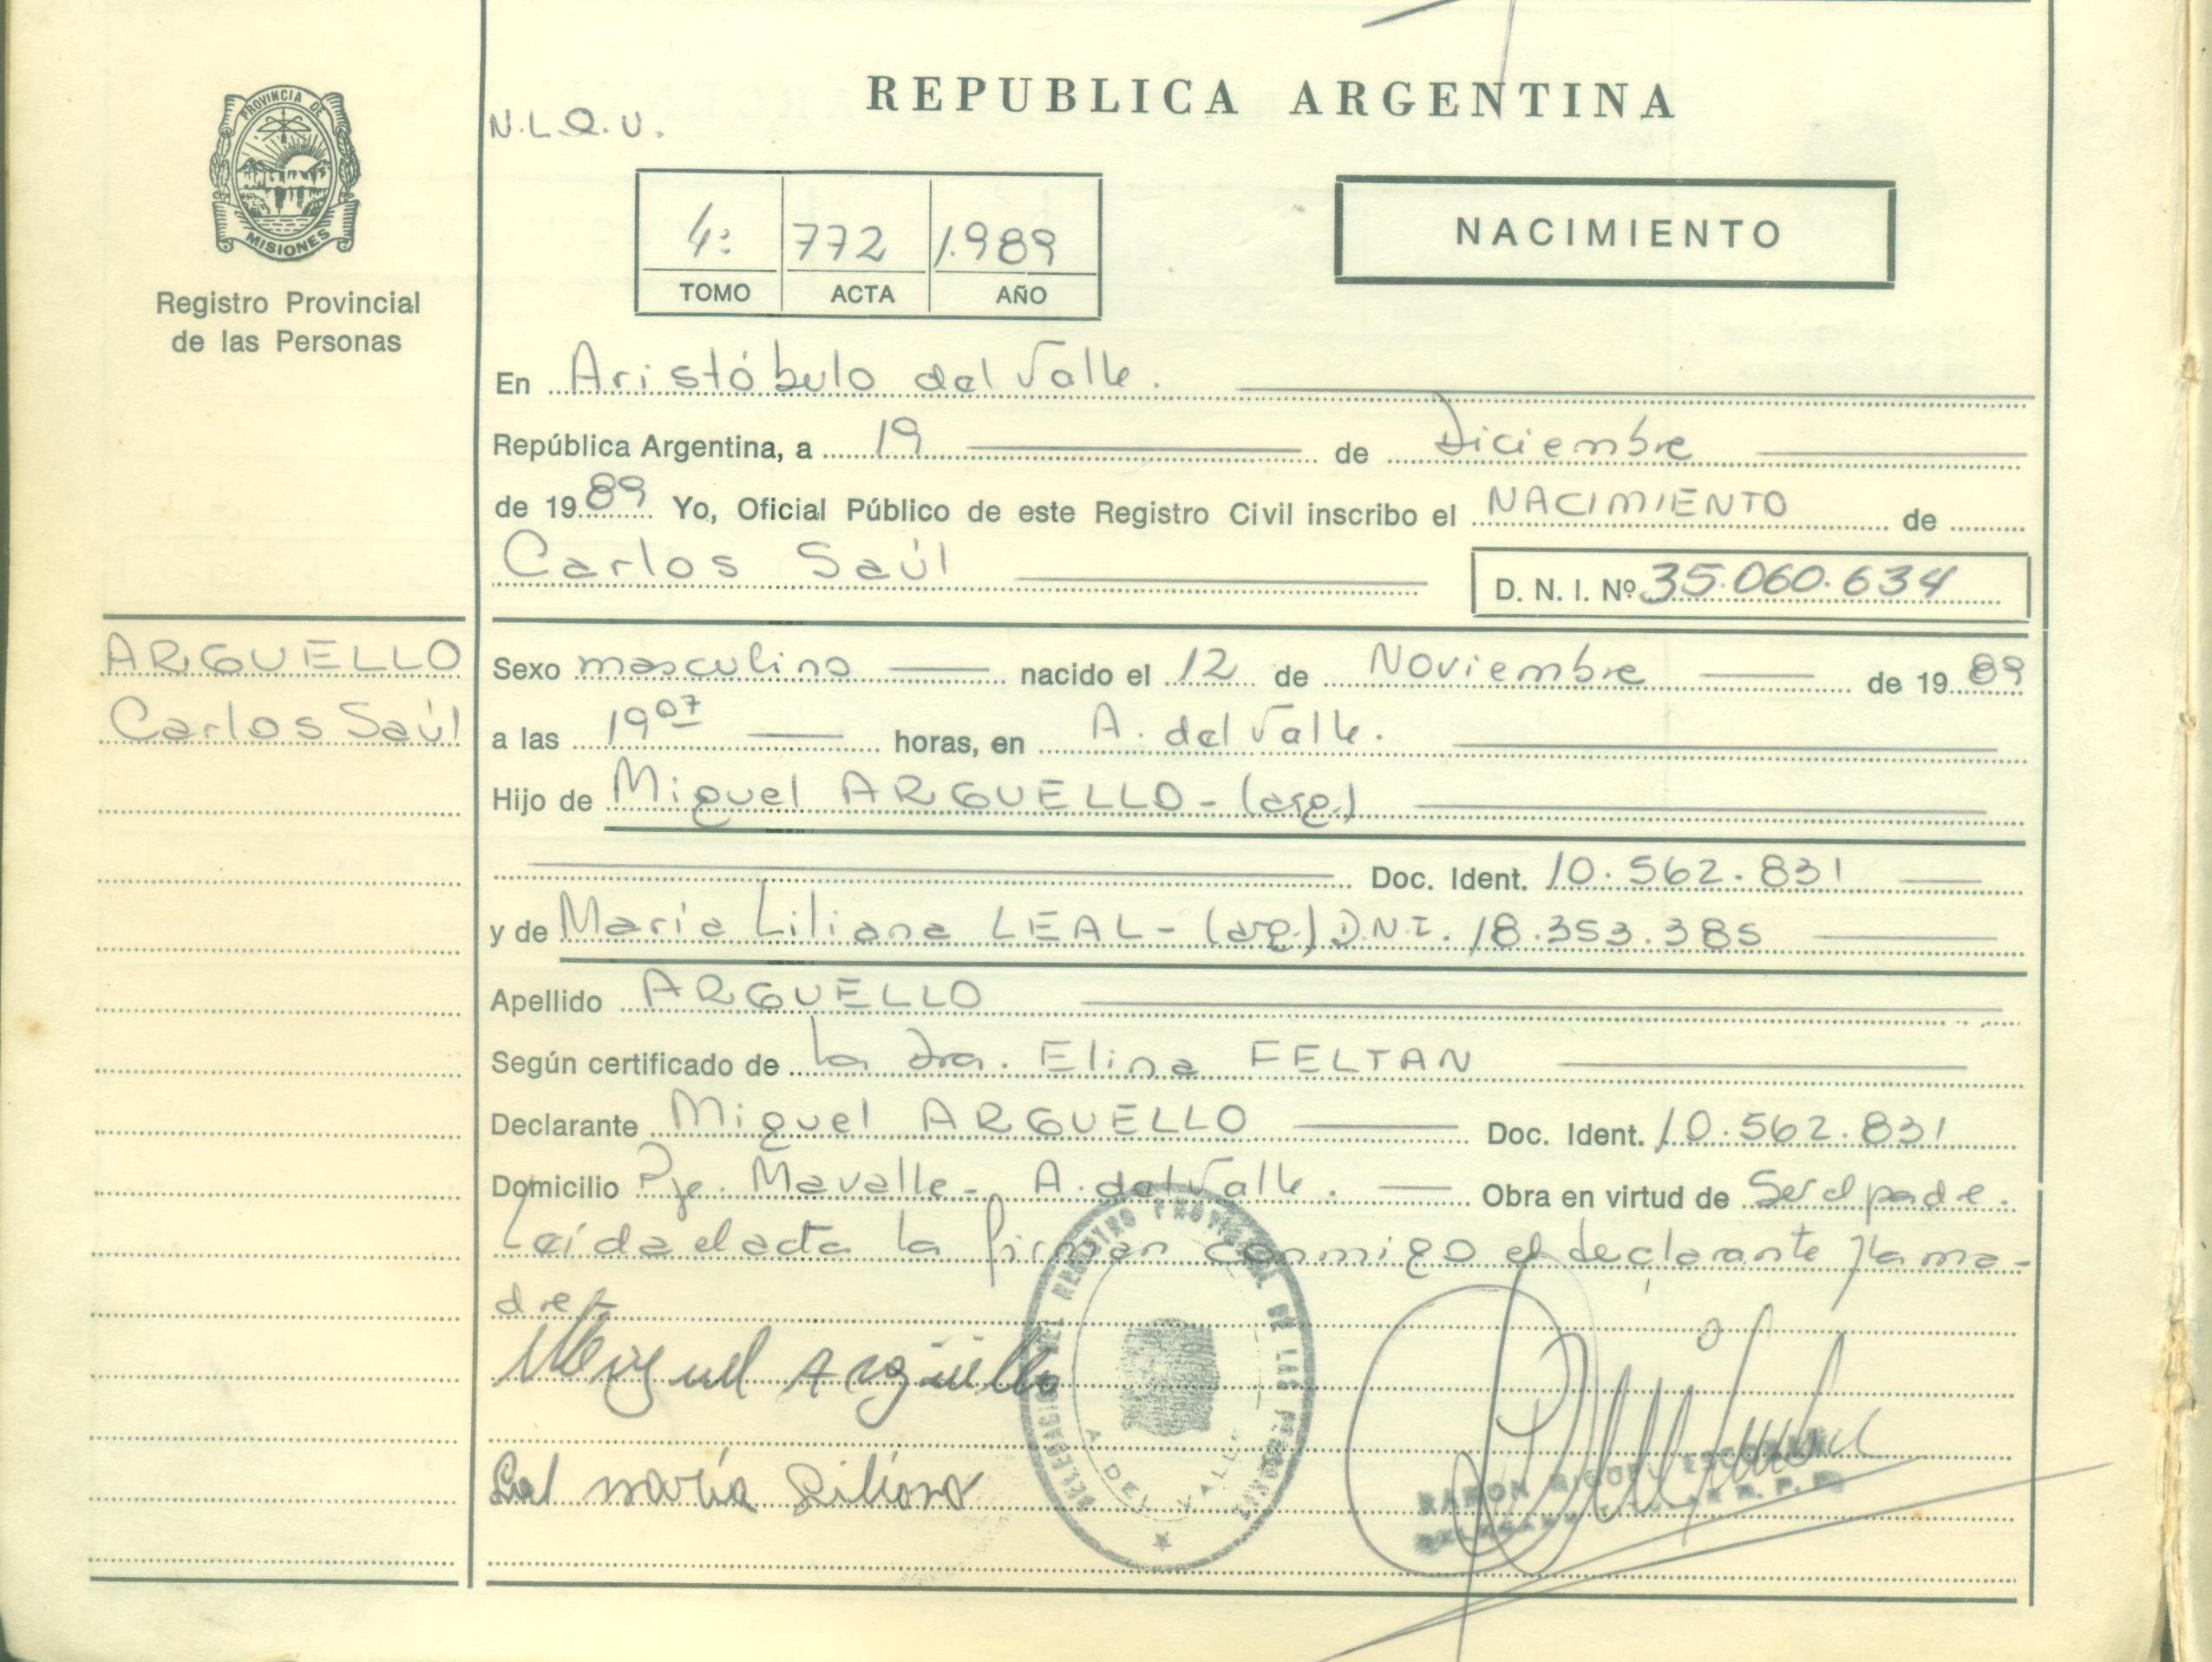 PROVINCIA DE
MISIONES
Registro Provincial
de las Personas
REPUBLICA ARGENTINA
N.L.Q.V.
4º 772 1.989
TOMO ACTA AÑO
NACIMIENTO
En Aristóbulo del Valle.
República Argentina, a 19 de Diciembre
de 1989 Yo, Oficial Público de este Registro Civil inscribo el NACIMIENTO de
Carlos Saúl D. N. I. Nº 35.060.634
ARGUELLO
Carlos Saúl
Sexo masculino nacido el 12 de Noviembre de 1989
a las 19 07 horas, en A. del Valle.
Hijo de Miguel ARGUELLO - (arg.)
Doc. Ident. 10.562.831
y de María Liliana LEAL - (arg.) D.N.I. 18.353.385
Apellido ARGUELLO
Según certificado de la Dra. Elina FELTAN
Declarante Miguel ARGUELLO Doc. Ident. 10.562.831
Domicilio Pje. Mavalle - A. del Valle. Obra en virtud de Ser el padre.
Leída el acta la firman conmigo el declarante y la ma-
dre.-
Miguel Argüello
Leal María Liliana
DELEGACION DEL REGISTRO PROVINCIAL DE LAS PERSONAS
A. DEL VALLE
RAMON MIGUEL
R. P. P.